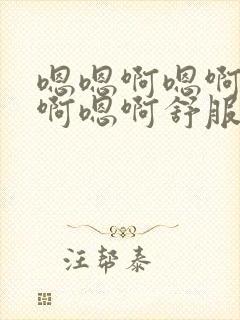 嗯嗯啊嗯啊
啊嗯啊舒服
汪帮泰